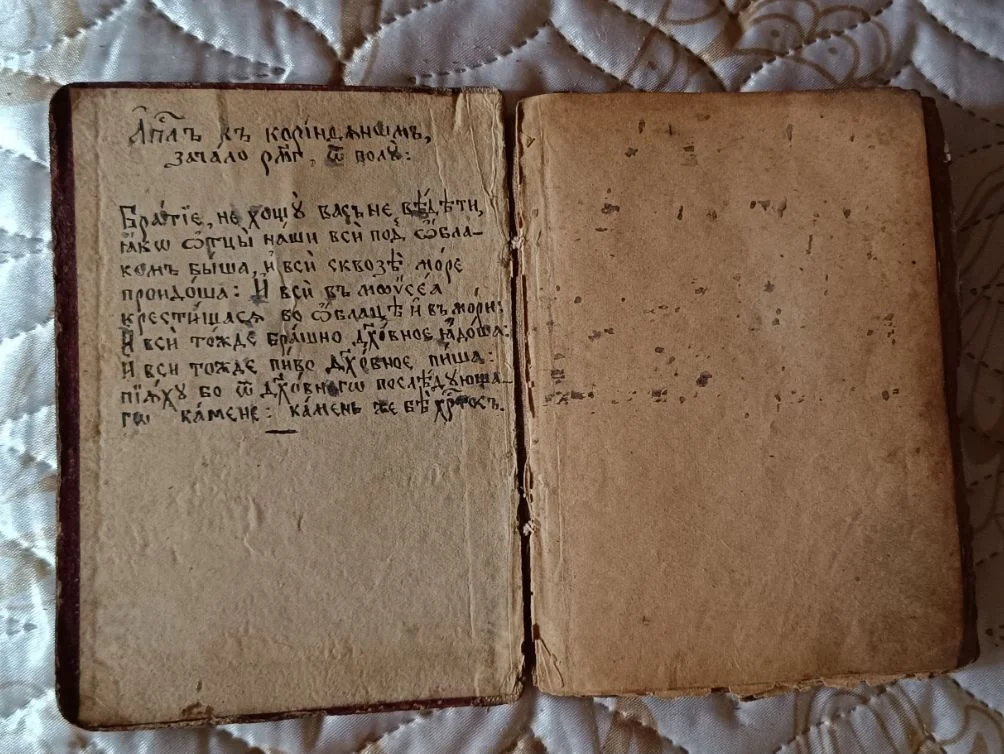 А҆пⷭ҇лъ къ корінѳѧнѡмъ,
зачало рм҃г, ѿ полꙋ̀:
Бра́тїе, не хощꙋ̀ васъ не вѣ́дѣти,
ꙗ҆́кѡ ѻ҆тцы̀ на́ши всѝ под̾ ѡ҆́бла-
комъ бы́ша, и҆ всѝ сквозѣ̀ мо́ре
проидо́ша: И҆ всѝ въ мѡѷсе́а
крести́шасѧ во ѡ҆́блацѣ и҆ въ мо́ри:
И҆ всѝ то́жде бра́шно дх҃о́вное ꙗ҆до́ша:
И҆ вси то́жде пи́во дх҃о́вное пиша:
пїѧ́хꙋ бо ѿ дх҃о́внагѡ послѣ́дꙋюща-
гѡ ка́мене: ка́мень же бѣ̀ хрⷭ҇то́съ.